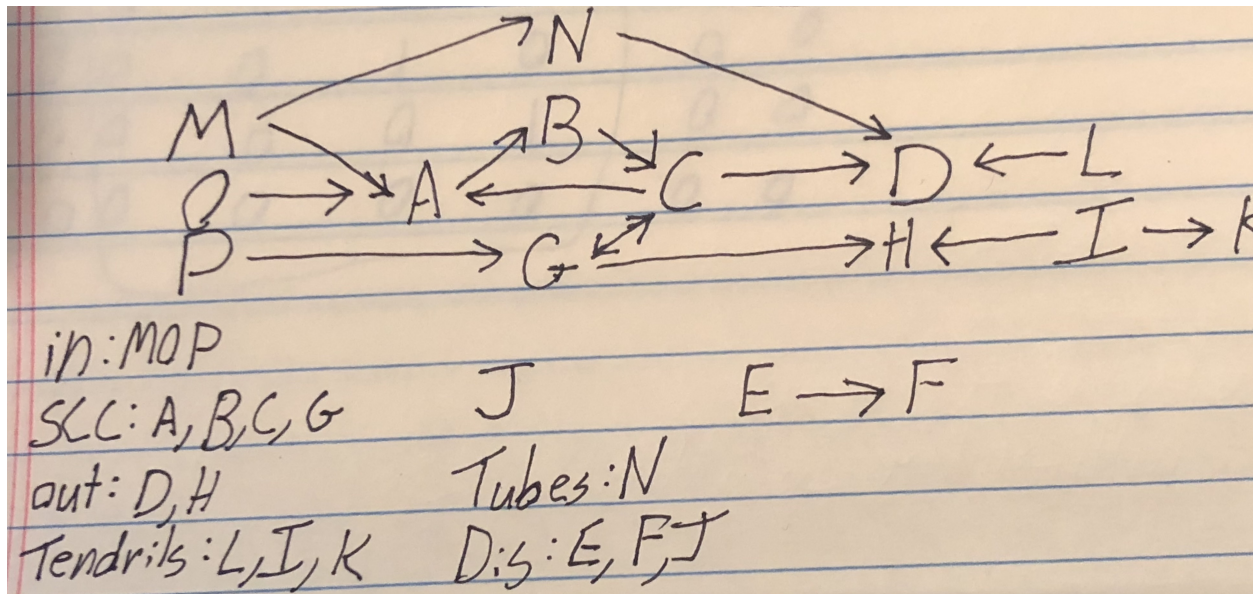 N
M B
O A C D L
P G H I K
in: MOP
J E F
SCC: A, B, C, G
out: D, H Tubes: N
Tendrils: L, I, K Dis: E, F, J